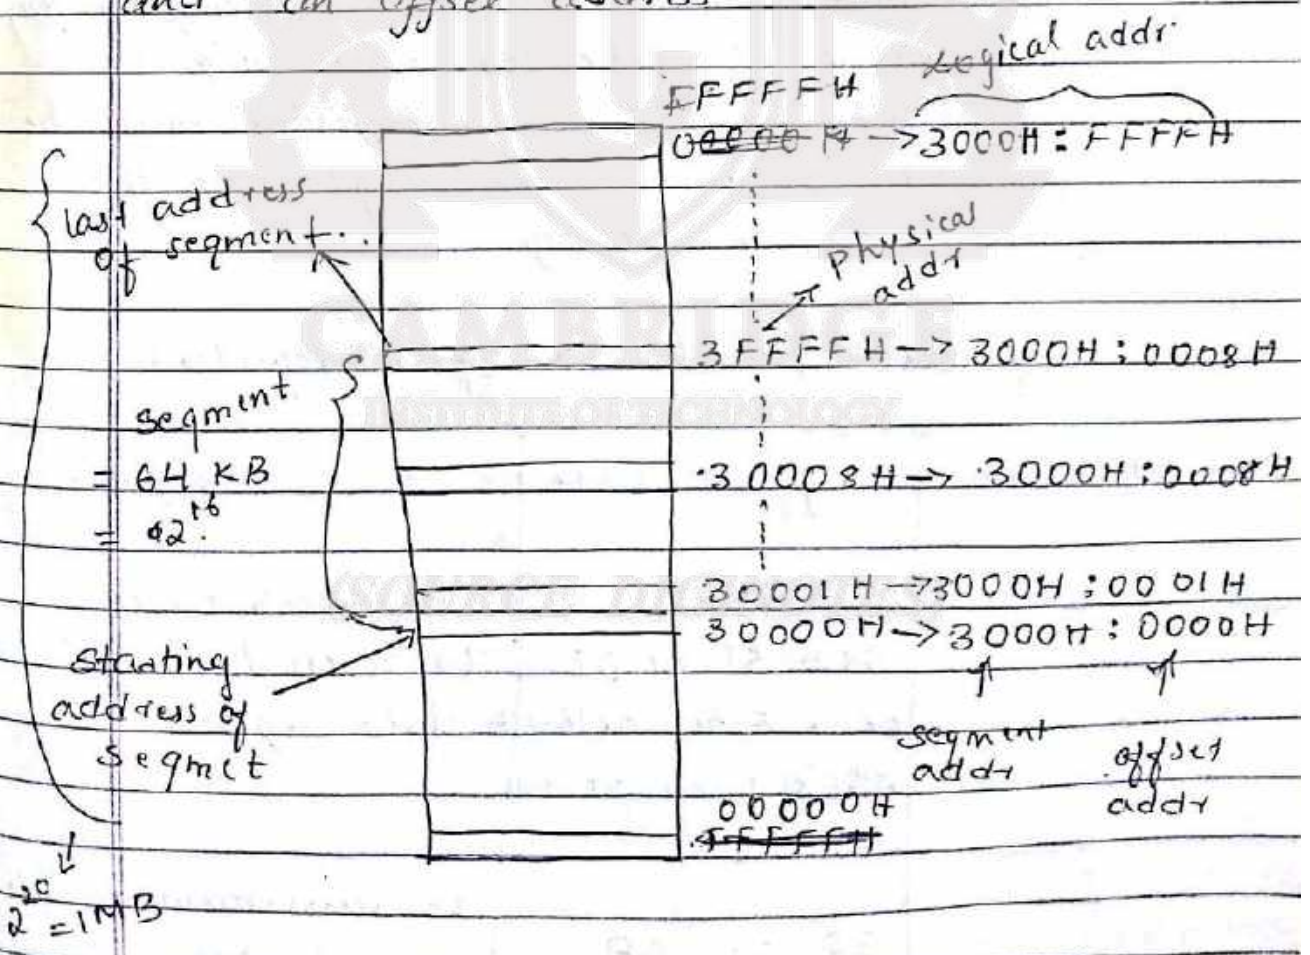 and an offset address
Logical addr
FFFFFH
00000H -> 3000H : FFFFH
last address
of segment..
physical
addr
3FFFFH -> 3000H : 0008H
segment
= 64 KB
= 2^16.
30008H -> 3000H : 0008H
30001H -> 3000H : 0001H
30000H -> 3000H : 0000H
Starting
address of
Segmet
segment
addr
offset
addr
00000H
FFFFFH
2^20 = 1MB
CAMBRIDGE
INSTITUTE OF TECHNOLOGY